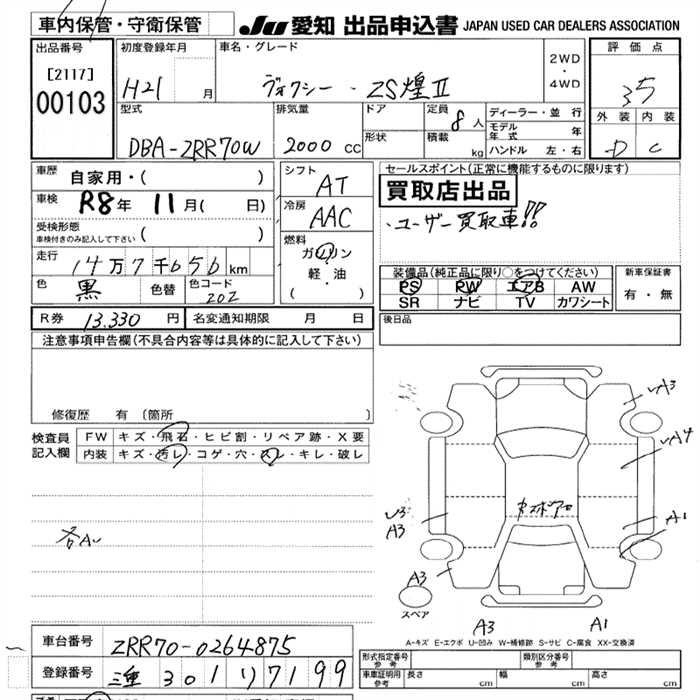 車内保管・守衛保管
JU 愛知 出品申込書 JAPAN USED CAR DEALERS ASSOCIATION
出品番号
[2117]
00103
初度登録年月
H21 月
車名・グレード
ヴォクシー・ZS煌Ⅱ
2WD
・
4WD
評価点
3.5
外装 内装
D C
型式
DBA-ZRR70W
排気量
2000 CC
ドア
形状
定員 8人
積載 kg
ディーラー・並行
モデル年式 年
ハンドル 左・右
車歴 自家用・( )
車検 R8年 11月( 日)
受検形態
車検付きのみ記入して下さい ( )
走行 14万7千656km
色 黒 色替 色コード 202
シフト AT
冷房 AAC
燃料
ガソリン
軽・油
( )
セールスポイント(正常に機能するものに限ります)
買取店出品
・ユーザー買取車!!
装備品(純正品に限り○をつけてください)
PS PW エアB AW
SR ナビ TV カワシート
新車保証書
有・無
R券 13,330円 名変通知期限 月 日
後日品
注意事項申告欄(不具合内容等は具体的に記入して下さい)
修復歴 有 (箇所 )
検査員
記入欄
FW キズ・飛石・ヒビ割・リペア跡・X要
内装 キズ・汚レ・コゲ・穴・スレ・キレ・破レ
各AU
A3
A4
A1
U3
A3
A3
スペア
A3
A1
A-キズ E-エクボ U-凹み W-補修跡 S-サビ C-腐食 XX-交換済
車台番号 ZRR70-0264875
登録番号 三重 301 り 7199
形式指定番号
参考
類別区分番号
参考
車庫証明用
参考
長さ cm 幅 cm 高さ cm